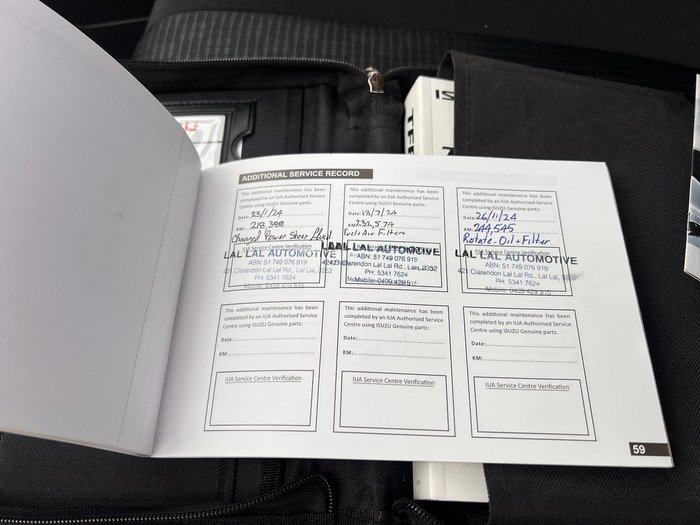 ADDITIONAL SERVICE RECORD
This additional maintenance has been
completed by an IUA Authorised Service
Centre using ISUZU Genuine parts:
Date: 23/1/24
KM: 218,388
Changed Power Steer fluid
IUA Service Centre Verification
LAL LAL AUTOMOTIVE
ABN: 51 749 076 919
421 Clarendon Lal Lal Rd., Lal Lal, 3352
PH: 5341 7624
Mobile: 0409 429 515
This additional maintenance has been
completed by an IUA Authorised Service
Centre using ISUZU Genuine parts:
Date: 18/7/24
KM: 232,574
Filters
LAL LAL AUTOMOTIVE
ABN: 51 749 076 919
Clarendon Lal Lal Rd., Lal Lal, 3352
PH: 5341 7624
Mobile: 0409 429 515
This additional maintenance has been
completed by an IUA Authorised Service
Centre using ISUZU Genuine parts:
Date: 26/11/24
KM: 244,545
Rotate. Oil + Filter
IUA Service Centre Verification
LAL LAL AUTOMOTIVE
ABN: 51 749 076 919
421 Clarendon Lal Lal Rd., Lal Lal, 3352
PH: 5341 7624
Mobile: 0409 429 515
This additional maintenance has been
completed by an IUA Authorised Service
Centre using ISUZU Genuine parts:
Date:
KM:
IUA Service Centre Verification
This additional maintenance has been
completed by an IUA Authorised Service
Centre using ISUZU Genuine parts:
Date:
KM:
IUA Service Centre Verification
This additional maintenance has been
completed by an IUA Authorised Service
Centre using ISUZU Genuine parts:
Date:
KM:
IUA Service Centre Verification
59